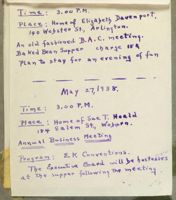 Time: 3.00 P.M.
Place: Home of Elizabeth Davenport,
140 Webster St., Arlington.
An old fashioned B.A.C. meeting.
Baked Bean Supper charge 25¢
Plan to stay for an evening of fun
May 27, 1938.
Time: 3.00 P.M.
Place: Home of Sue T. Heald
184 Salem St., Woburn.
Annual Business Meeting
Program: E.K. Conventions.
The Executive Board will be hostesses
at the supper following the meeting.